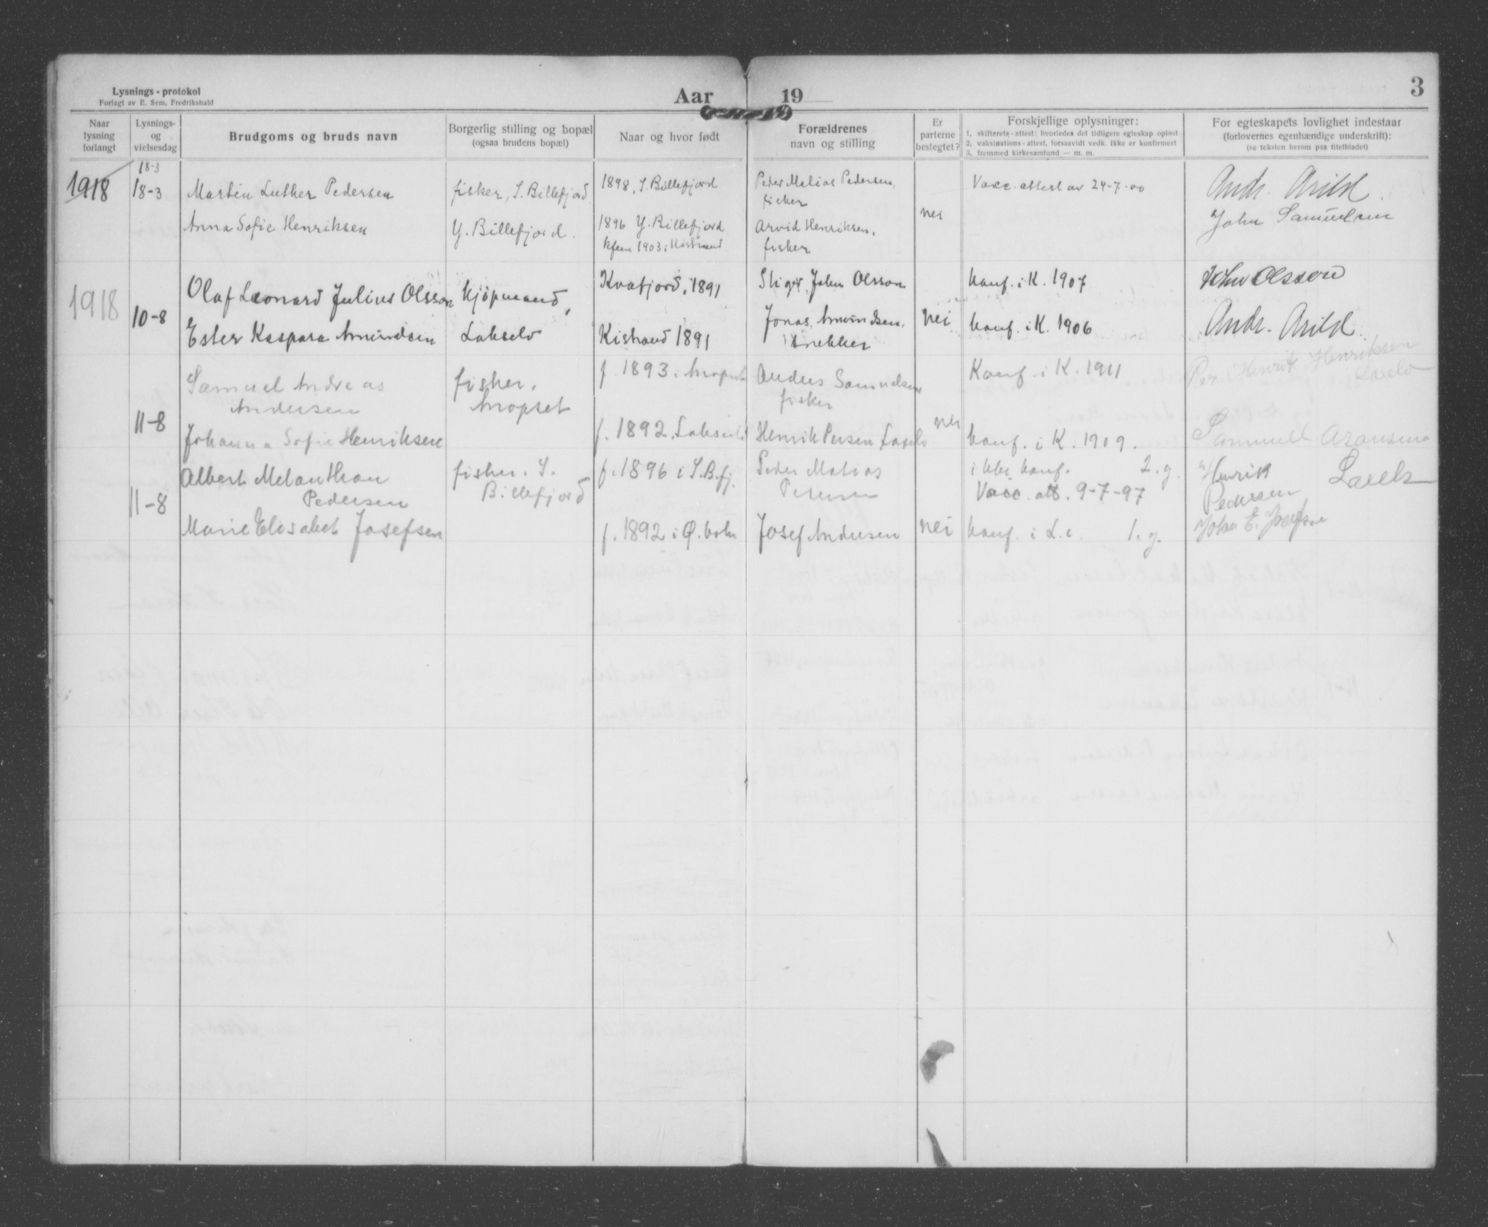 Lysnings-protokol
Forlagt av E. Sem, Fredrikshald
Aar 19
3
Naar lysning forlangt
Lysnings- og vielsesdag
Brudgoms og bruds navn
Borgerlig stilling og bopæl
(ogsaa brudens bopæl)
Naar og hvor født
Forældrenes
navn og stilling
Er parterne beslegtet?
Forskjellige oplysninger:
1. skifterets-attest; hvorledes det tidligere egteskap opløst
2. vaksinations-attest, forsaavidt vedk. ikke er konfirmert
3. fremmed kirkesamfund — m. m.
For egteskapets lovlighet indestaar
(forlovernes egenhændige underskrift):
(se teksten herom paa titelbladet)
1918
18-3
18-3
Martin Luther Pedersen
fisker, S. Billefjord
1898, S. Billefjord
Peder Matias Pedersen,
fisker
Vacc. attest av 24-7-00
Andr. Arild.
Anna Sofie Henriksen
Y. Billefjord.
1896 Y. Billefjord
1903 i Kistrand
Arvid Henriksen,
fisker
nei
John Samuelsen
1918
10-8
Olaf Leonard Julius Olsson
Kjøpmand,
Kvæfjord, 1891
John Olsson
konf. i K. 1907
John Olsson
Ester Kaspara Amundsen
Lakselv
Kistrand 1891
Jonas Amundsen,
snekker
nei
konf. i K. 1906
Andr. Arild.
11-8
Samuel Andreas
Andersen
fisker,
f. 1893 i
Anders Samuelsen
fisker
Konf. i K. 1911
Per Henrik Henriksen
Laxelv
Johanna Sofie Henriksen
f. 1892, Lakselv
Henrik Persen Laxelv
nei
konf. i K. 1909.
Samuel
11-8
Albert Melanthon
Pedersen
fisker. S.
Billefjord
f. 1896 i S.B.fj.
Peder Matias
Petersen
ikke konf. 2. g.
Vacc. att. 9-7-97
Henrik
Pedersen
Marie Elisabet Josefsen
f. 1892 i Ø. botn
Josef Andersen
nei
konf. i L. 1. g.
John E. Josefsen